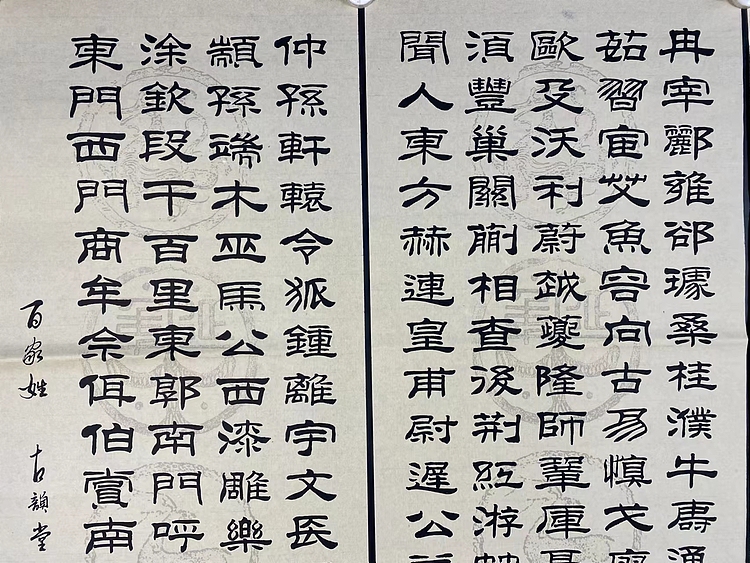 冉宰酈雍郤璩桑桂濮牛壽通
茹習宦艾魚容向古易慎戈廖
歐殳沃利蔚越夔隆師鞏厙
湏豐巢關蒯相查後荊紅游
聞人東方赫連皇甫尉遲公
仲孫軒轅令狐鍾離宇文長
顓孫端木巫馬公西漆雕樂
涂欽段干百里東郭南門呼
東門西門商牟佘佴伯賞南
百家姓 古韻堂